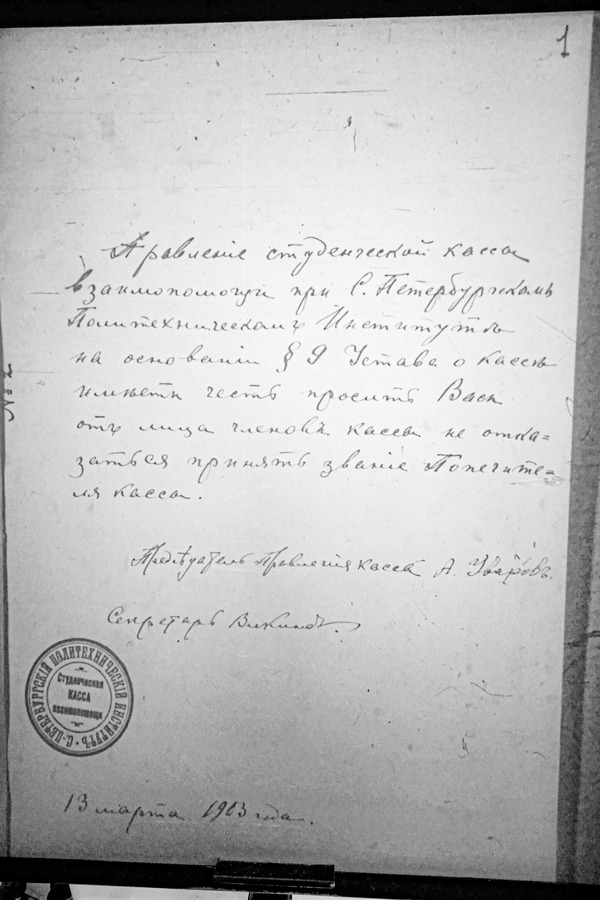 1
Правленіе студенческой кассы
взаимопомощи при С. Петербургскомъ
Политехническомъ Институтѣ
на основаніи § 9 Устава о кассѣ
имѣетъ честь просить Васъ
отъ лица членовъ кассы не отка=
заться принять званіе Попечите=
ля кассы.
Предсѣдатель Правленія кассы А. Уваровъ.
Секретарь
С-ПЕТЕРБУРГСКІЙ ПОЛИТЕХНИЧЕСКІЙ ИНСТИТУТЪ
Студенческая
КАССА
взаимопомощи
13 марта 1903 года.